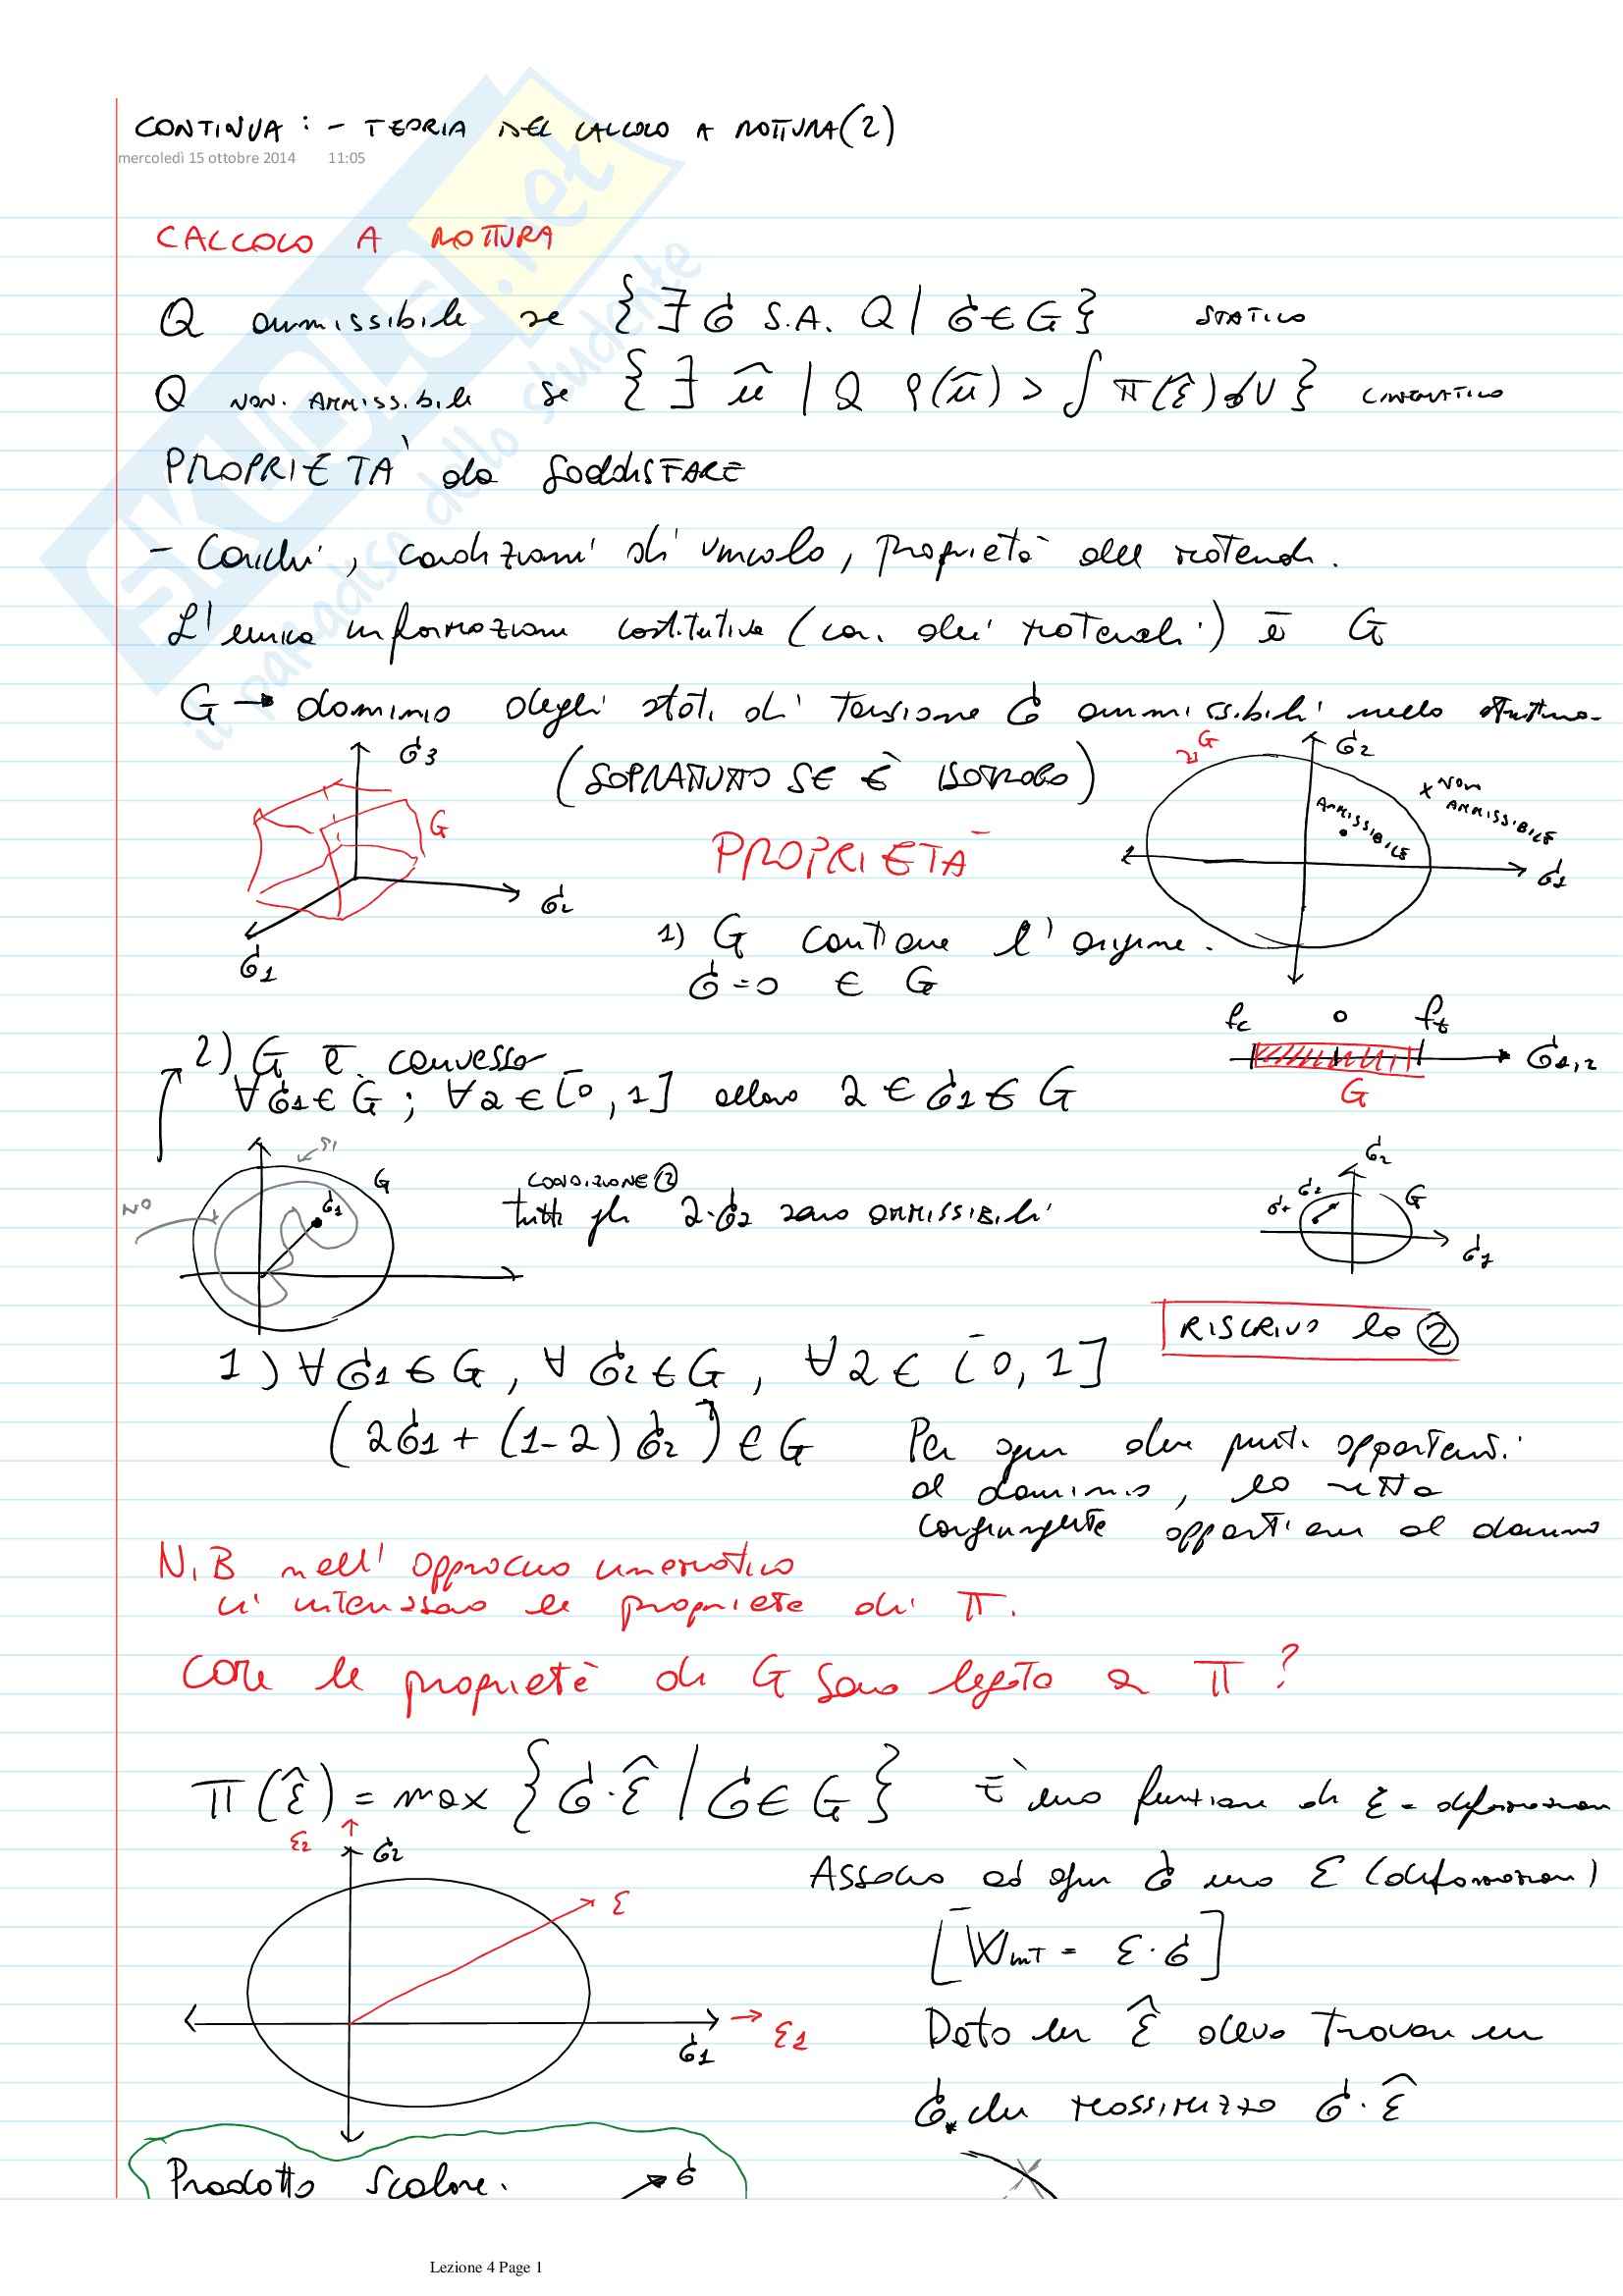 CONTINUA : - TEORIA DEL CALCOLO A ROTTURA (2)
mercoledì 15 ottobre 2014 11:05
CALCOLO A ROTTURA
Q ammissibile se { ∃ σ S.A. Q | σ ∈ G } STATICO
Q NON. AMMISSIBILE se { ∃ û | Q ρ(û) > ∫ π(ε̂) dV } CINEMATICO
PROPRIETA' da SODDISFARE
- Carichi, condizioni di vincolo, proprietà dei materiali.
L'unica informazione costitutiva (car. dei materiali) è G
G → dominio degli stati di tensione σ ammissibili nella struttura.
σ3
(SOPRATUTTO SE È ISOTROPO)
G
σ2
G
σ2
σ1
G
AMMISSIBILE
x NON AMMISSIBILE
σ1
PROPRIETÀ
1) G contiene l'origine.
σ=0 ∈ G
fc 0 ft
σ1,2
G
2) G è convesso
∀σ1 ∈ G ; ∀2 ∈ [0,1] allora 2 ∈ σ1 ∈ G
SI
NO
G
σ1
CONDIZIONE 2
tutti gli 2·σ2 sono AMMISSIBILI
σ2
σ1 σ2
G
σ1
RISCRIVO la 2
1) ∀σ1 ∈ G, ∀ σ2 ∈ G, ∀2 ∈ [0,1]
(2σ1 + (1-2) σ2) ∈ G
Per ogni due punti appartenenti
al dominio, la retta
congiungente appartiene al dominio
N.B nell'approccio cinematico
ci interessano le proprietà di π.
COME le proprietà di G sono legate a π?
π(ε̂) = max { σ·ε̂ | σ ∈ G } È una funzione di ε = deformazione
ε2 σ2
ε
σ1
ε1
Associo ad ogni σ una ε (deformazione)
[Wint = ε·σ]
Dato un ε̂ devo trovare un
σ* che massimizzo σ·ε̂
Prodotto Scalare. σ
Lezione 4 Page 1
il paradiso dello studente
SKUOLA.net